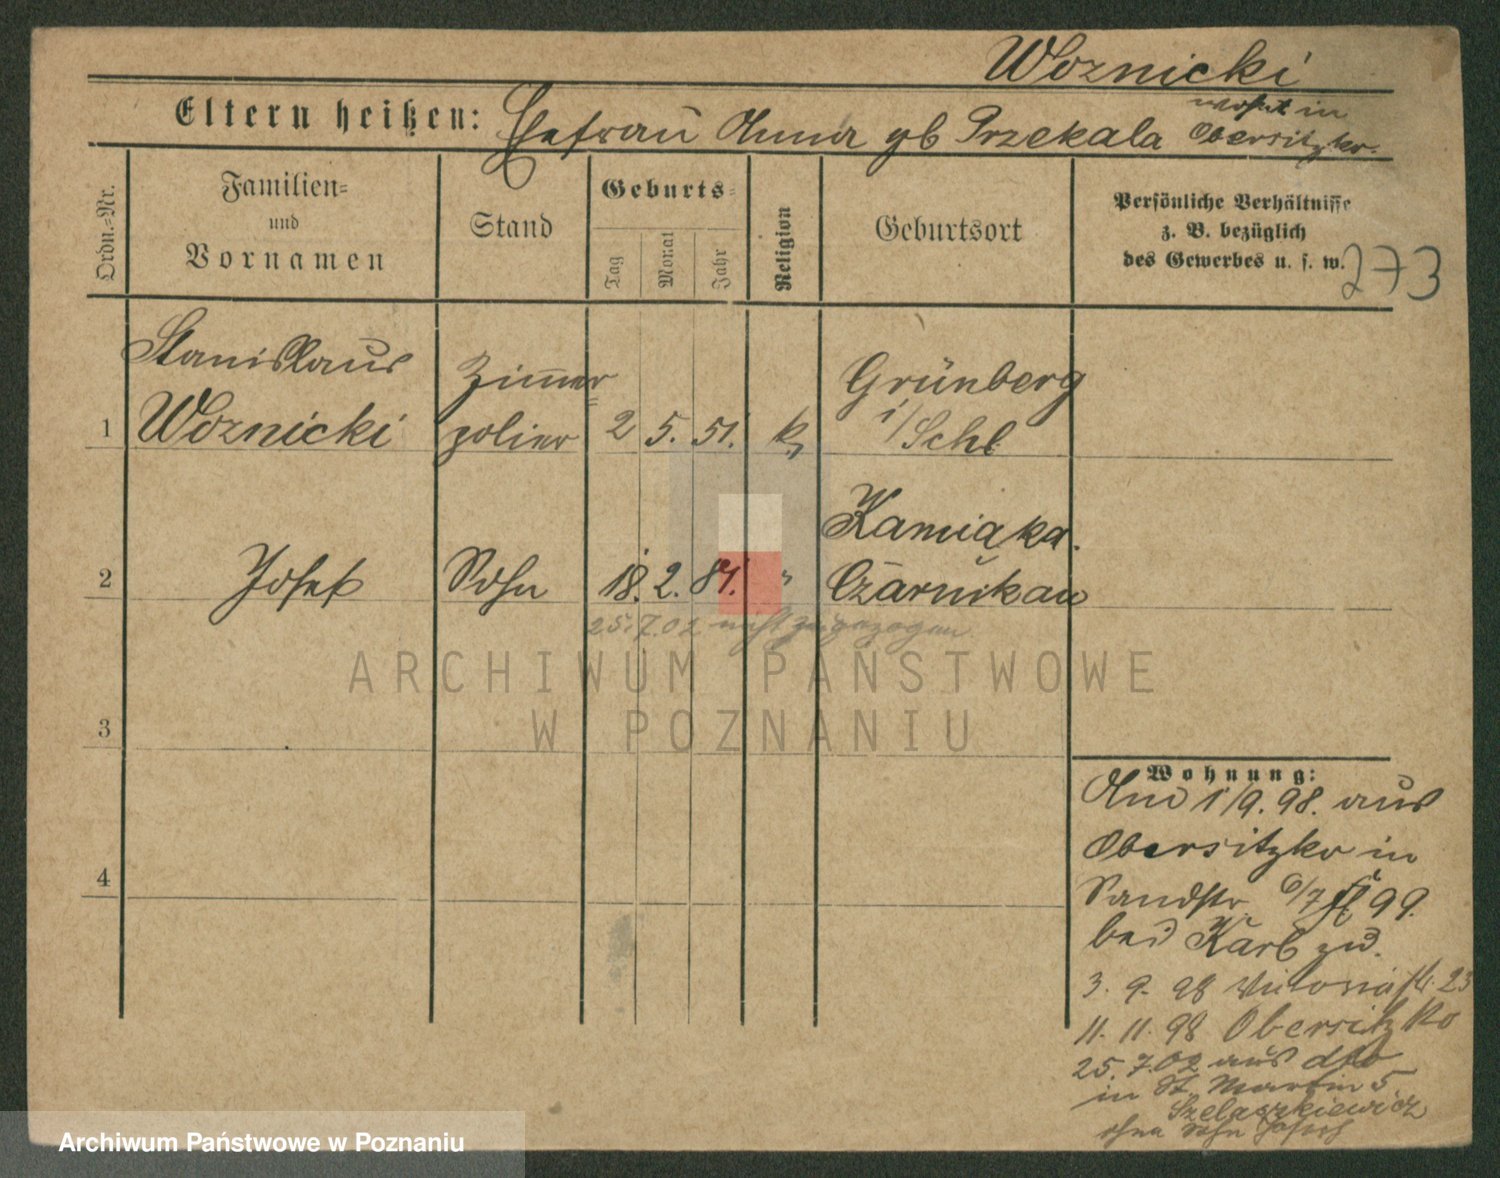 Woznicki
Eltern heißen: Ehefrau Anna gb Przekala wohnt in
Obersitzko.
Ordn.-Nr.
Familien-
und
Vornamen
Stand
Geburts-
Tag
Monat
Jahr
Religion
Geburtsort
Persönliche Verhältnisse
z. B. bezüglich
des Gewerbes u. s. w.
273
1
Stanislaus
Woznicki
Zimmer
polier
2 5. 51. k.
Grünberg
i/Schl
2
Josef
Sohn
18. 2. 84. "
Kamionka.
Czarnikau
25.7.02 nicht zugezogen
3
4
Wohnung:
And 1/9. 98. aus
Obersitzko in
Sandstr. 6/7 99.
bei Karb zu.
3. 9. 98 Victoriastr. 23
11. 11. 98 Obersitzko
25. 7. 02 aus dto
in St. Martin 5
Szelaszkiewicz
ohne Sohn Josef
ARCHIWUM PAŃSTWOWE
W POZNANIU
Archiwum Państwowe w Poznaniu